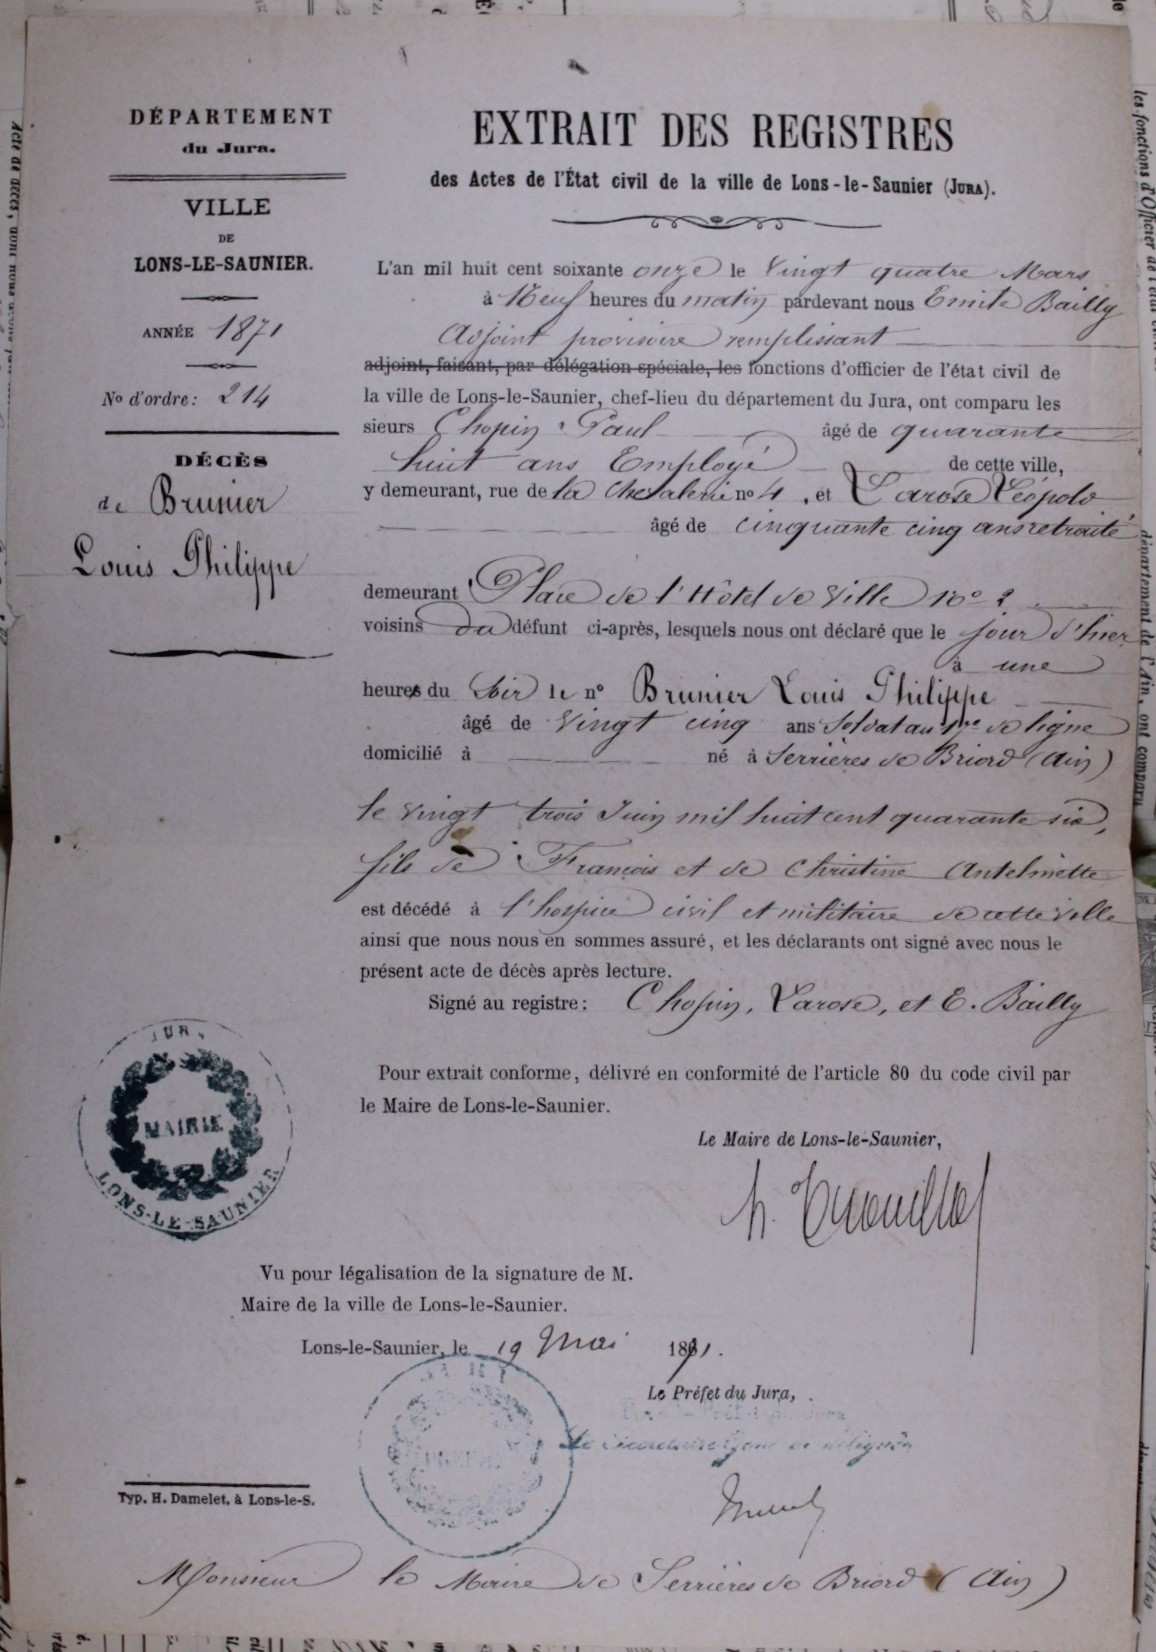 DÉPARTEMENT
du Jura.
VILLE
DE
LONS-LE-SAUNIER.
ANNÉE 1871
No d'ordre: 214
DÉCÈS
de Brunier
Louis Philippe
EXTRAIT DES REGISTRES
des Actes de l'État civil de la ville de Lons-le-Saunier (JURA).
L'an mil huit cent soixante onze le vingt quatre Mars
à Neuf heures du matin pardevant nous Emile Bailly
adjoint provisoire remplissant
adjoint, faisant, par délégation spéciale, les fonctions d'officier de l'état civil de
la ville de Lons-le-Saunier, chef-lieu du département du Jura, ont comparu les
sieurs Chopin Paul âgé de quarante
huit ans Employé de cette ville,
y demeurant, rue de la Chevalerie no 4, et Larose Léopold
âgé de cinquante cinq ans retraité
demeurant Place de l'Hôtel de Ville No 2
voisins du défunt ci-après, lesquels nous ont déclaré que le jour d'hier
à une
heures du soir le nº Brunier Louis Philippe
âgé de vingt cinq ans soldat au de ligne
domicilié à né à Serrières de Briord (Ain)
le vingt trois Juin mil huit cent quarante six,
fils de François et de Christine Anthelmette
est décédé à l'hospice civil et militaire de cette ville
ainsi que nous nous en sommes assuré, et les déclarants ont signé avec nous le
présent acte de décès après lecture.
Signé au registre: Chopin, Larose, et E. Bailly
Pour extrait conforme, délivré en conformité de l'article 80 du code civil par
le Maire de Lons-le-Saunier.
Le Maire de Lons-le-Saunier,
JURA
MAIRIE
LONS-LE-SAUNIER
Vu pour légalisation de la signature de M.
Maire de la ville de Lons-le-Saunier.
Lons-le-Saunier, le 19 Mai 1871.
Le Préfet du Jura,
Typ. H. Damelet, à Lons-le-S.
Monsieur le Maire de Serrières de Briord (Ain)